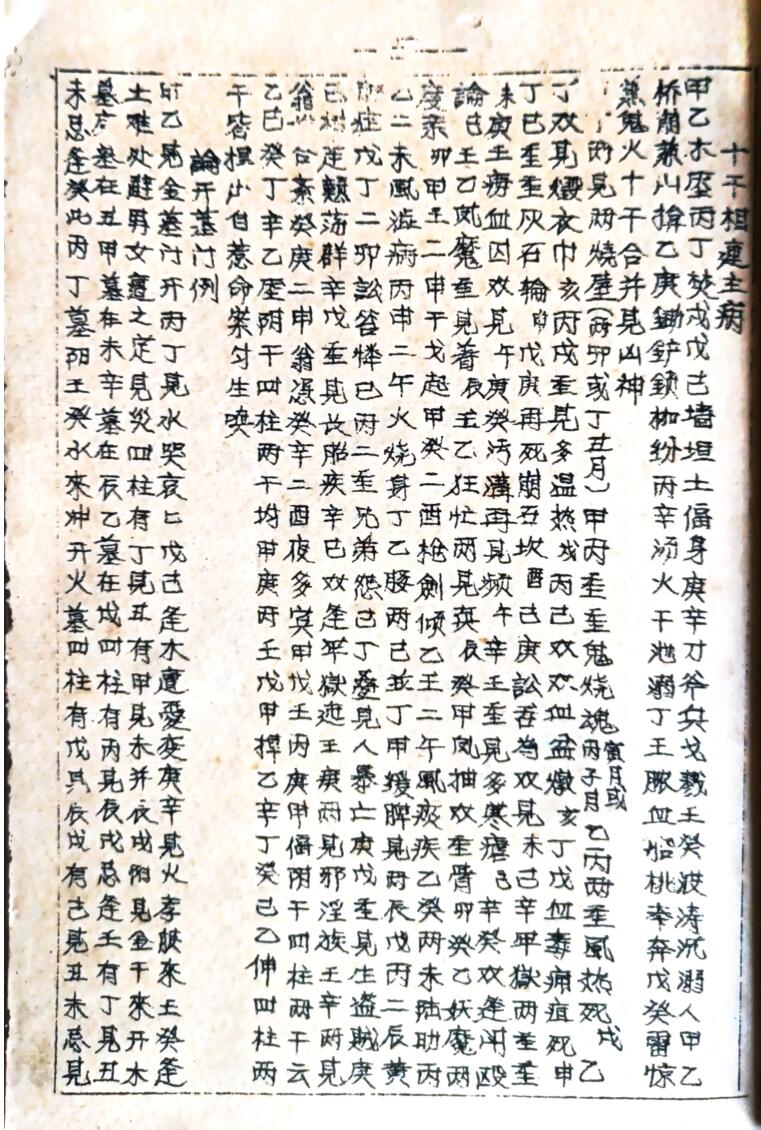 十干相連主病
甲乙木壓丙丁焚戌戊己墙垣土傷身庚辛刀斧兵戈戮壬癸波涛沉溺人甲乙
桥崩兼川損乙庚鋤鏟鎖枷纷丙辛湯火干池溺丁壬膿血船桃奉奔戊癸雷惊
鬼火十干合并見凶神
丙見丙燒壁(丙卯或丁丑月)甲丙重重鬼燒魂寅月或丙子月乙丙两重風热死戌乙
丁双見燬衣巾亥丙戊重見多温热戌丙己双双血盆燉亥丁戊血毒痈疽死申
丁己重重灰石輪申戊庚再死崩石坎酉己庚訟吾為双見未己辛甲獄两重重
未庚壬痨血囚双見午庚癸污溝再見频午辛壬重見多寒瘧己辛癸双逢闹殴
論己壬乙風魔重見着辰壬乙狂忙两見真辰癸甲風抽双重臂卯癸乙妖魔两
度亲卯甲壬二申干戈起甲癸二酉枪劍倾乙壬二午風痰疾乙癸两未陆助丙
乙二未風涎病丙申二午火燒身丁乙腰两己並丁甲缓脾見两辰戊丙二辰黄
症戊丁二卯訟笞憐己丙二重兄弟怨己丁憂見人暴亡庚戊重見生盗賊庚
己逢颠荡群辛戊重見故胎疾辛己双逢牢獄迍壬庚两見邪淫族壬辛两見
翁癸庚二申翁憑癸辛二酉夜多寅甲戊壬丙庚甲傷阴干四柱两干云
乙己癸丁辛乙壓阴干四柱两干均甲庚丙壬戊甲損乙辛丁癸己乙伸四柱两
干皆損少自惹命案勾生喚
論开墓门例
甲乙見金墓门开丙丁見水哭哀匕戊己逢木遭憂变庚辛見火孝服來壬癸逢
土难处避男女遭之定見災四柱有丁見丑有甲見未并辰戌阳見金干來开木
墓庚墓在丑甲墓在未辛墓在辰乙墓在戌四柱有丙見辰戌忌逢壬有丁見丑
未忌逢癸此丙丁墓阴壬癸水來冲开火墓四柱有戊見辰戌有己見丑未忌見